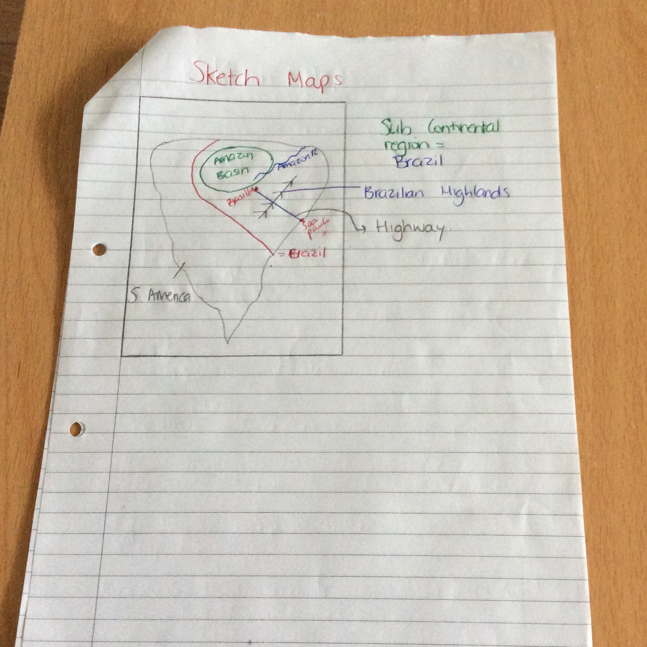 Sketch Maps
Sub Continental
region =
Brazil
Amazon
Basin
Amazon R.
Brasilia
Brazilian Highlands
Sao
Paulo
Highway
= Brazil
S America